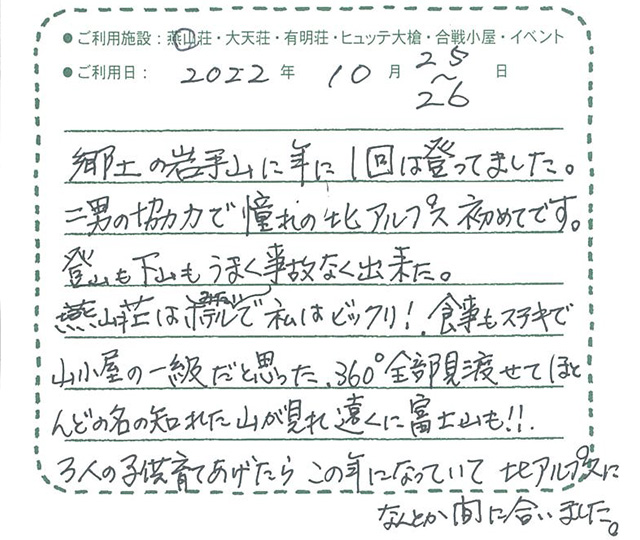 ●ご利用施設：燕山荘・大天荘・有明荘・ヒュッテ大槍・合戦小屋・イベント
●ご利用日：2022年 10月 25～26日
郷土の岩手山に年に1回は登ってました。
二男の協力で憧れの北アルプス初めてです。
登山も下山もうまく事故なく出来た。
燕山荘はホテルみたいで私はビックリ！食事もステキで
山小屋の一級だと思った、360°全部見渡せてほと
んどの名の知れた山が見れ遠くに富士山も!!.
3人の子供育てあげたら この年になっていて 北アルプスに
なんとか間に合いました。